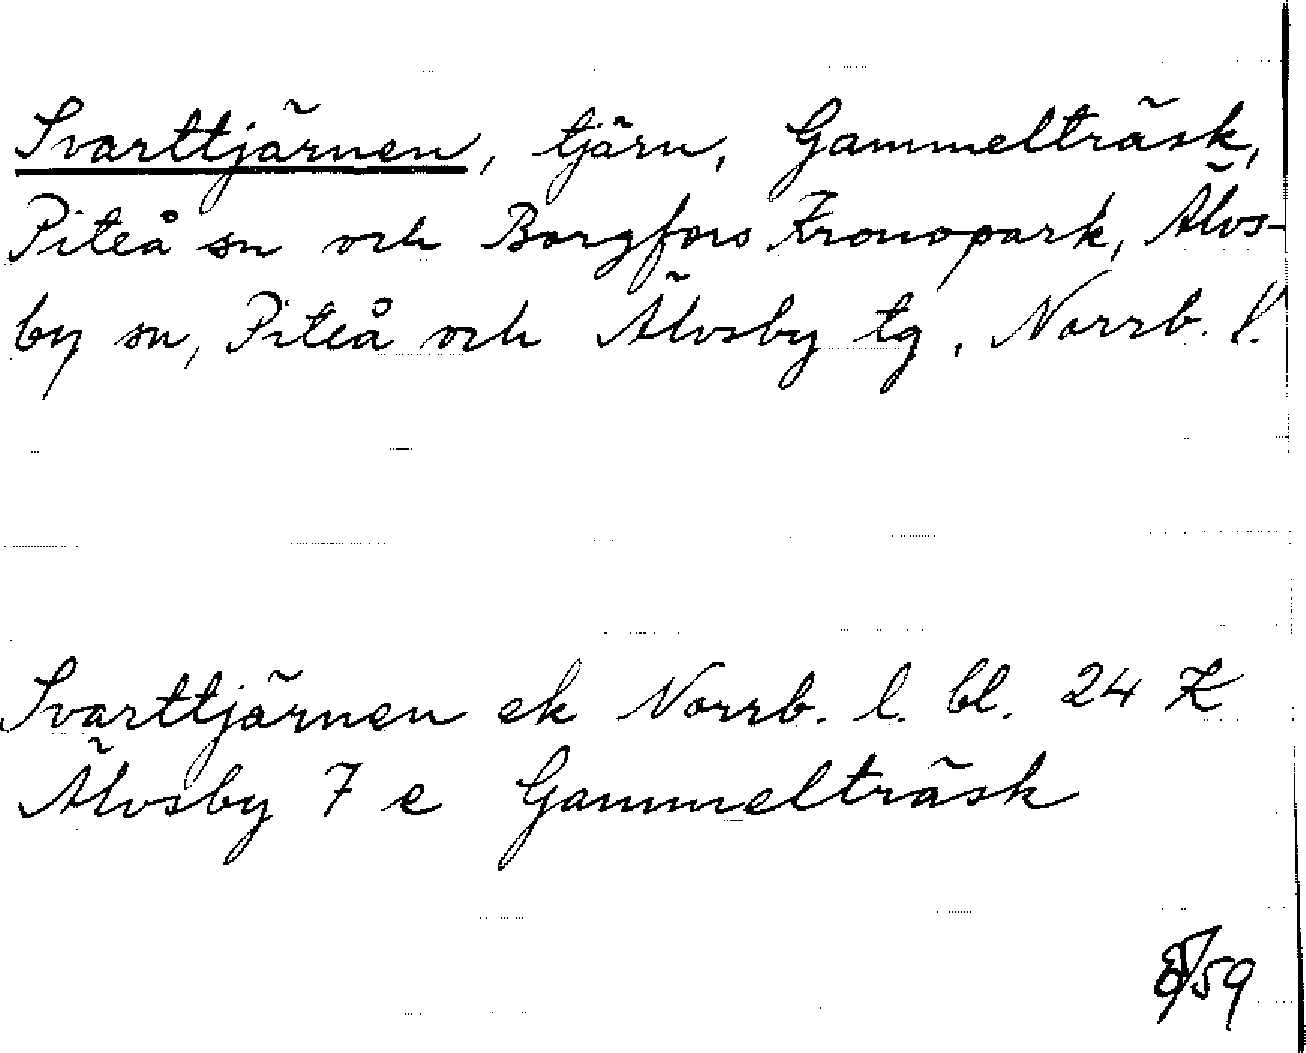 Svarttjärnen, tjärn, Gammelträsk,
Piteå sn och Borgfors Kronopark, Älvs-
by sn, Piteå och Älvsby tg, Norrb. l.
Svarttjärnen ek Norrb. l. bl. 24 K
Älvsby 7 e Gammelträsk
59